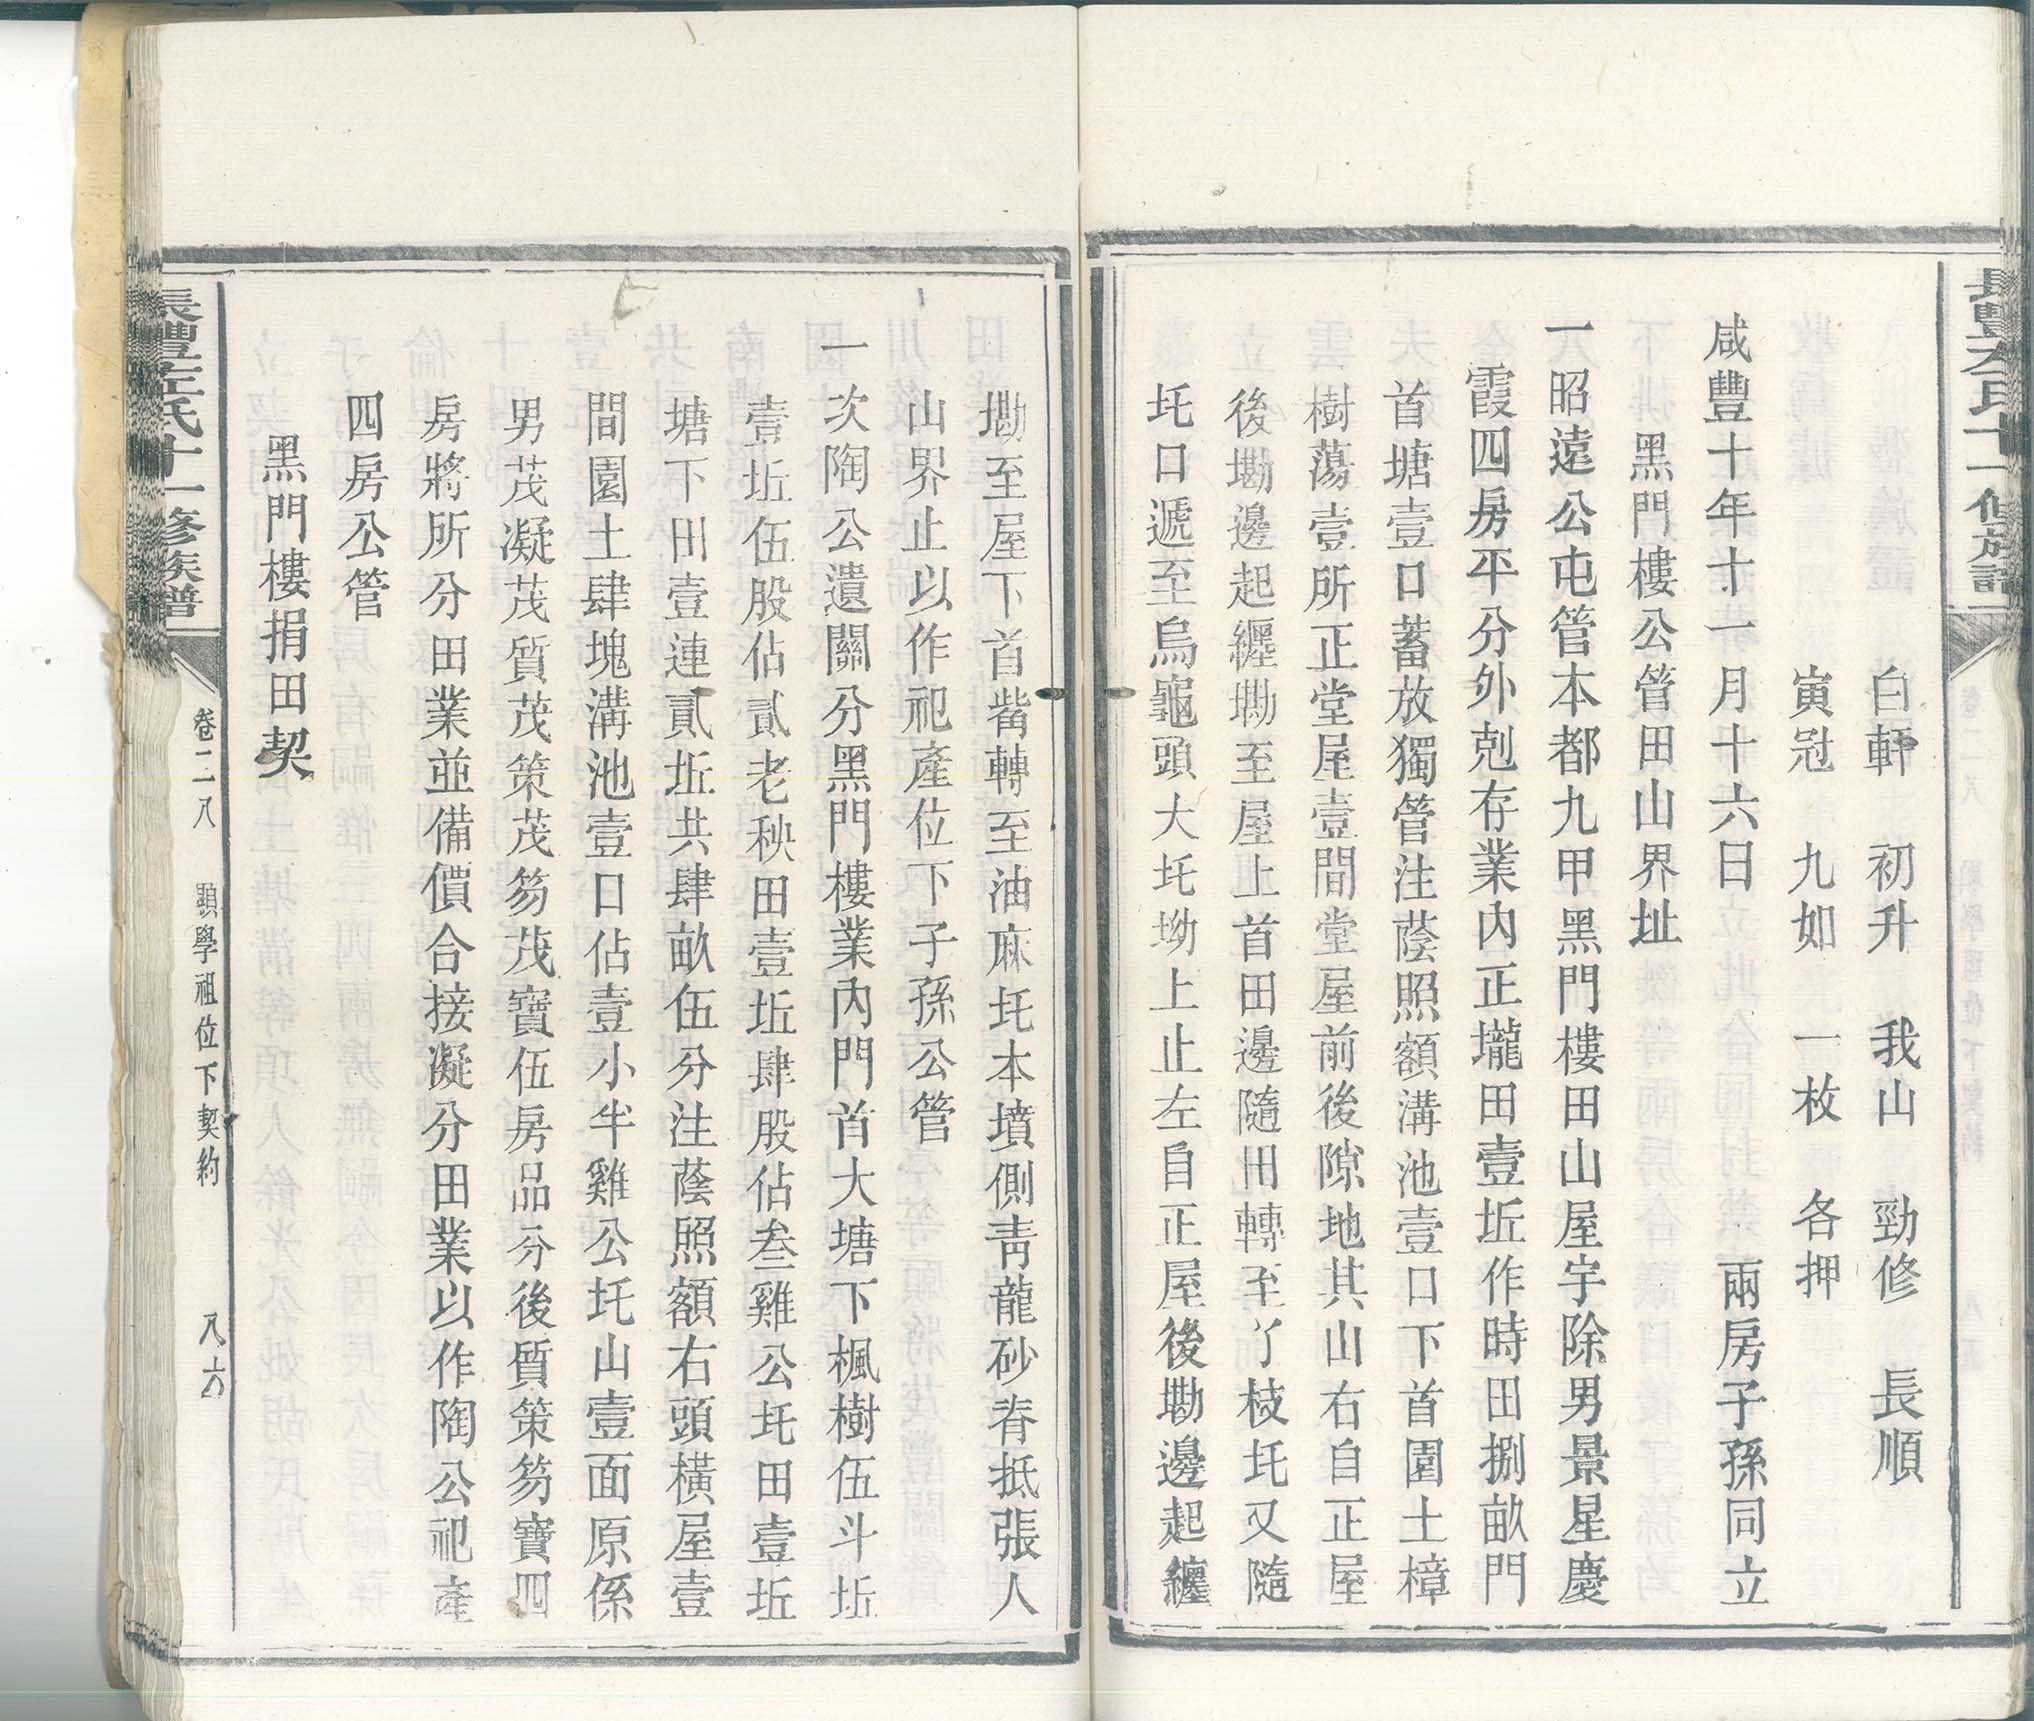 白軒　初升　我山　勁修　長順
寅冠　九如　一枚　各押
咸豐十年十一月十六日　兩房子孫同立
黑門樓公管田山界址
一昭遠公屯管本都九甲黑門樓田山屋宇除男景星慶
霞四房平分外剋存業內正壠田壹坵作時田捌畝門
首塘壹口蓄放獨管注蔭照額溝池壹口下首園土樟
樹蕩壹所正堂屋壹間堂屋前後隙地其山右自正屋
後墈邊起纏墈至屋上首田邊隨田轉至丫枝圫又隨
圫口遞至烏龜頭大圫坳上止左自正屋後墈邊起纏
墈至屋下首觜轉至油麻圫本墳側靑龍砂脊抵張人
山界止以作祀產位下子孫公管
一次陶公遺關分黑門樓業內門首大塘下楓樹伍斗坵
壹坵伍股佔貳老秧田壹坵肆股佔叁雞公圫田壹坵
塘下田壹連貳坵共肆畝伍分注蔭照額右頭橫屋壹
間園土肆塊溝池壹口佔壹小半雞公圫山壹面原係
男茂凝茂質茂策茂笏茂寶伍房品分後質策笏寶四
房將所分田業並備價合接凝分田業以作陶公祀產
四房公管
黑門樓捐田契
長豐左氏十一修族譜
卷二八　顯學祖位下契約　八六